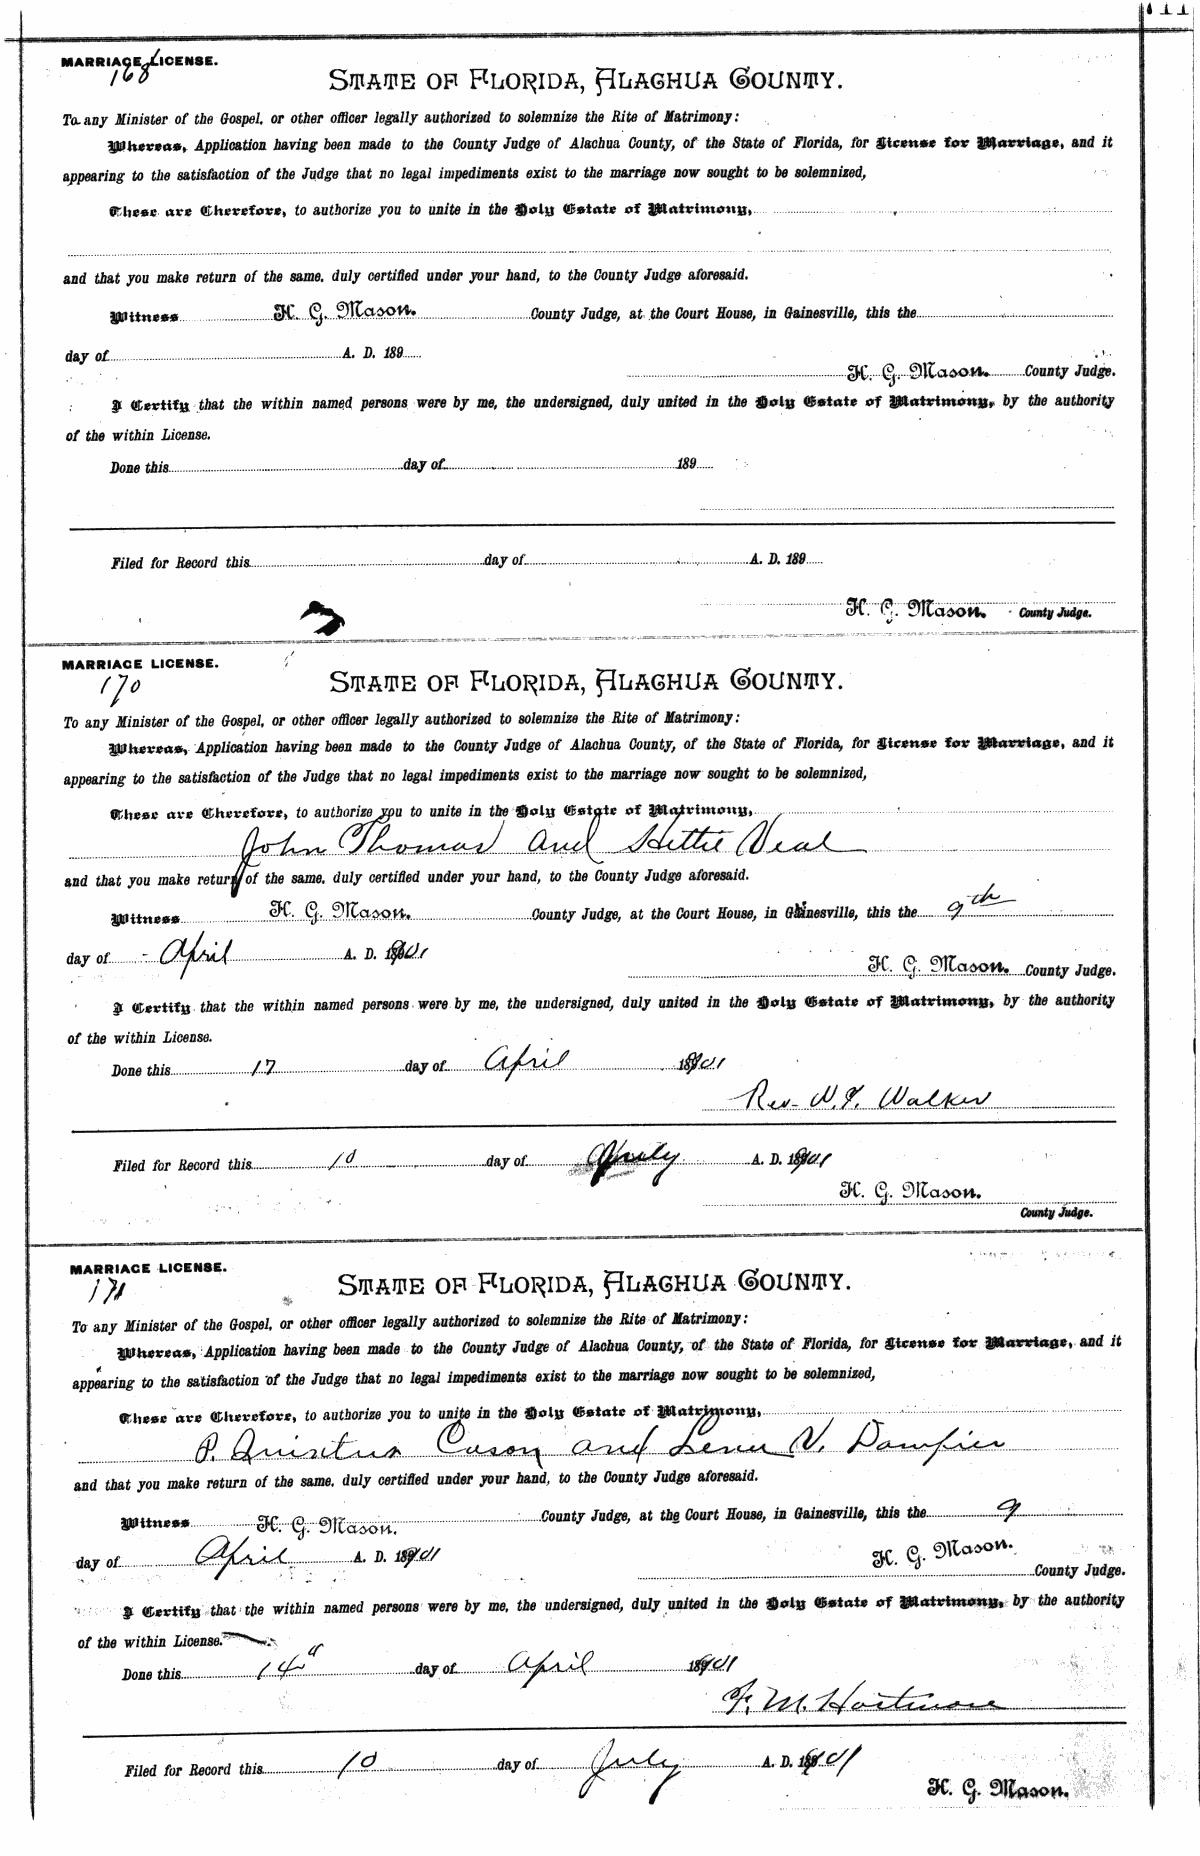 MARRIAGE LICENSE.
168
STATE OF FLORIDA, ALACHUA COUNTY.
To any Minister of the Gospel, or other officer legally authorized to solemnize the Rite of Matrimony:
Whereas, Application having been made to the County Judge of Alachua County, of the State of Florida, for License for Marriage, and it
appearing to the satisfaction of the Judge that no legal impediments exist to the marriage now sought to be solemnized,
These are Therefore, to authorize you to unite in the Holy Estate of Matrimony,
and that you make return of the same, duly certified under your hand, to the County Judge aforesaid.
Witness H. G. Mason. County Judge, at the Court House, in Gainesville, this the
day of A. D. 189
H. G. Mason. County Judge.
I Certify that the within named persons were by me, the undersigned, duly united in the Holy Estate of Matrimony, by the authority
of the within License.
Done this day of 189
Filed for Record this day of A. D. 189
H. G. Mason. County Judge.
MARRIAGE LICENSE.
170
STATE OF FLORIDA, ALACHUA COUNTY.
To any Minister of the Gospel, or other officer legally authorized to solemnize the Rite of Matrimony:
Whereas, Application having been made to the County Judge of Alachua County, of the State of Florida, for License for Marriage, and it
appearing to the satisfaction of the Judge that no legal impediments exist to the marriage now sought to be solemnized,
These are Therefore, to authorize you to unite in the Holy Estate of Matrimony,
John Thomas and Hettie Veal
and that you make return of the same, duly certified under your hand, to the County Judge aforesaid.
Witness H. G. Mason. County Judge, at the Court House, in Gainesville, this the 9th
day of April A. D. 1901
H. G. Mason. County Judge.
I Certify that the within named persons were by me, the undersigned, duly united in the Holy Estate of Matrimony, by the authority
of the within License.
Done this 17 day of April 1901
Rev. N. F. Walker
Filed for Record this 10 day of July A. D. 1901
H. G. Mason.
County Judge.
MARRIAGE LICENSE.
171
STATE OF FLORIDA, ALACHUA COUNTY.
To any Minister of the Gospel, or other officer legally authorized to solemnize the Rite of Matrimony:
Whereas, Application having been made to the County Judge of Alachua County, of the State of Florida, for License for Marriage, and it
appearing to the satisfaction of the Judge that no legal impediments exist to the marriage now sought to be solemnized,
These are Therefore, to authorize you to unite in the Holy Estate of Matrimony,
P. Quintus Cason and Lena V. Dampier
and that you make return of the same, duly certified under your hand, to the County Judge aforesaid.
Witness H. G. Mason. County Judge, at the Court House, in Gainesville, this the 9
day of April A. D. 1901
H. G. Mason.
County Judge.
I Certify that the within named persons were by me, the undersigned, duly united in the Holy Estate of Matrimony, by the authority
of the within License.
Done this 14 day of April 1901
F. M.
Filed for Record this 10 day of July A. D. 1901
H. G. Mason.